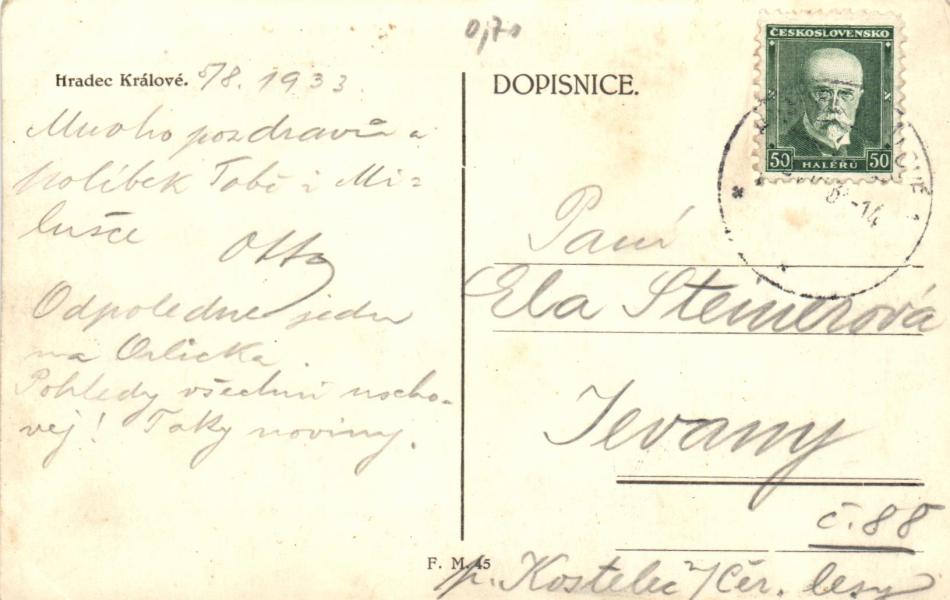 0,70
Hradec Králové. 5/8. 1933
Mnoho pozdravů a
polibek Tobě i Mi=
lušce
Otto
Odpoledne jedu
na Orlicko.
Pohledy všechny uscho-
vej! Taky noviny.
DOPISNICE.
ČESKOSLOVENSKO
50 HALÉŘŮ 50
Paní
Ela Steinerová
Jevany
č. 88
p. Kostelec n/Čer. lesy
F. M. 45